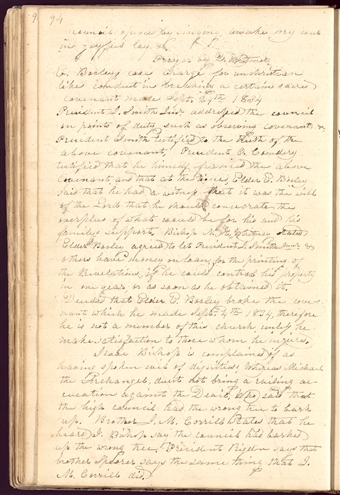 94
council opened by singing, awake my soul
in joyful lays, &c.
Prayer by
E. Bosley case charge for unchristian
like conduct in breaking a certain sacred
covenant made Sept. 4th 1834
President J. Smith Jun. addressed the council
on points of duty, such as observing covenants &c
President Smith testified to the truth of the
above covenant, President O. Cowdery
testified that he himself penned the above
Covenant, and that at the time, Elder E. Bosley
said that he had a witness that it was the will
of the Lord that he should consecrate the
surplus of what would be for his and his
family's support. Bishop N. K. Whitney stated
Elder Bosley agreed to let President J. Smith Jun. &
others have money on loan, for the printing of
the Revelations, if he could control his property
in one year, or as soon as he obtained it.
Decided that Elder E. Bosley broke the cove-
nant which he made Sept. 4th 1834, therefore
he is not a member of this church unless he
make satisfaction to those whom he injured.
Isaac Bishop is complained of as
having spoken evil of dignities, Whereas Michael
the Archangel, durst not bring a railing ac-
cusation against the Devil, Who said that
this high council has the wrong tree to bark
up. Brother J. M. Corrill States that he
heard I. Bishop say the council had barked
up the wrong tree, President Rigdon says that
brother Spencer says the same thing that J.
M. Corrill did